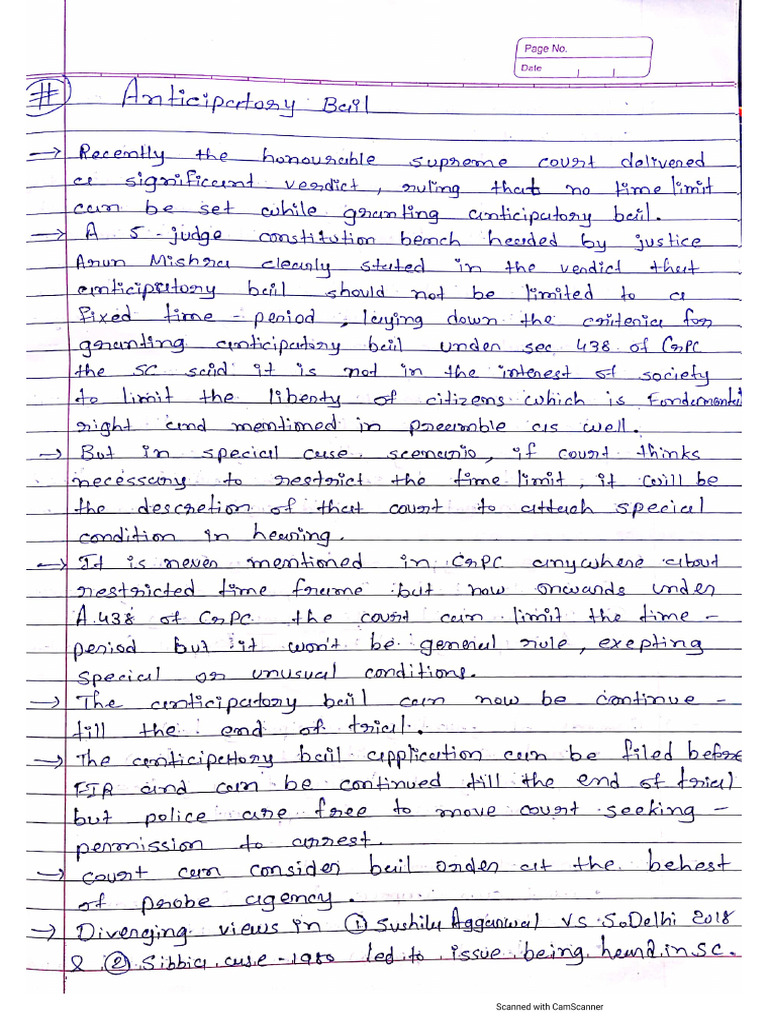 Page No.
Date
# Anticipatory Bail
→ Recently the honourable supreme court delivered
a significant verdict, ruling that no time limit
can be set while granting anticipatory bail.
→ A 5-judge constitution bench headed by justice
Arun Mishra clearly stated in the verdict that
anticipatory bail should not be limited to a
fixed time-period, laying down the criteria for
granting anticipatory bail under sec 438 of CrPC
the SC said it is not in the interest of society
to limit the liberty of citizens which is Fondamental
right and mentioned in preamble as well.
→ But in special case scenario, if court thinks
necessary to restrict the time limit, it will be
the descretion of that court to attach special
condition in hearing.
→ It is never mentioned in CrPC anywhere about
restricted time frame but now onwards under
A.438 of CrPC the court can limit the time-
period but it won't be general rule, exepting
special or unusual conditions.
→ The anticipatory bail can now be continue -
till the end of trial.
→ The anticipatory bail application can be filed before
FIR and can be continued till the end of trial
but police are free to move court seeking -
permission to arrest.
→ court can consider bail order at the behest
of probe agency.
→ Diverging views in ① Sushila Aggarwal vs S.Delhi 2018
& ② Sibbia case - 1980 led to issue being heard in SC.
Scanned with CamScanner